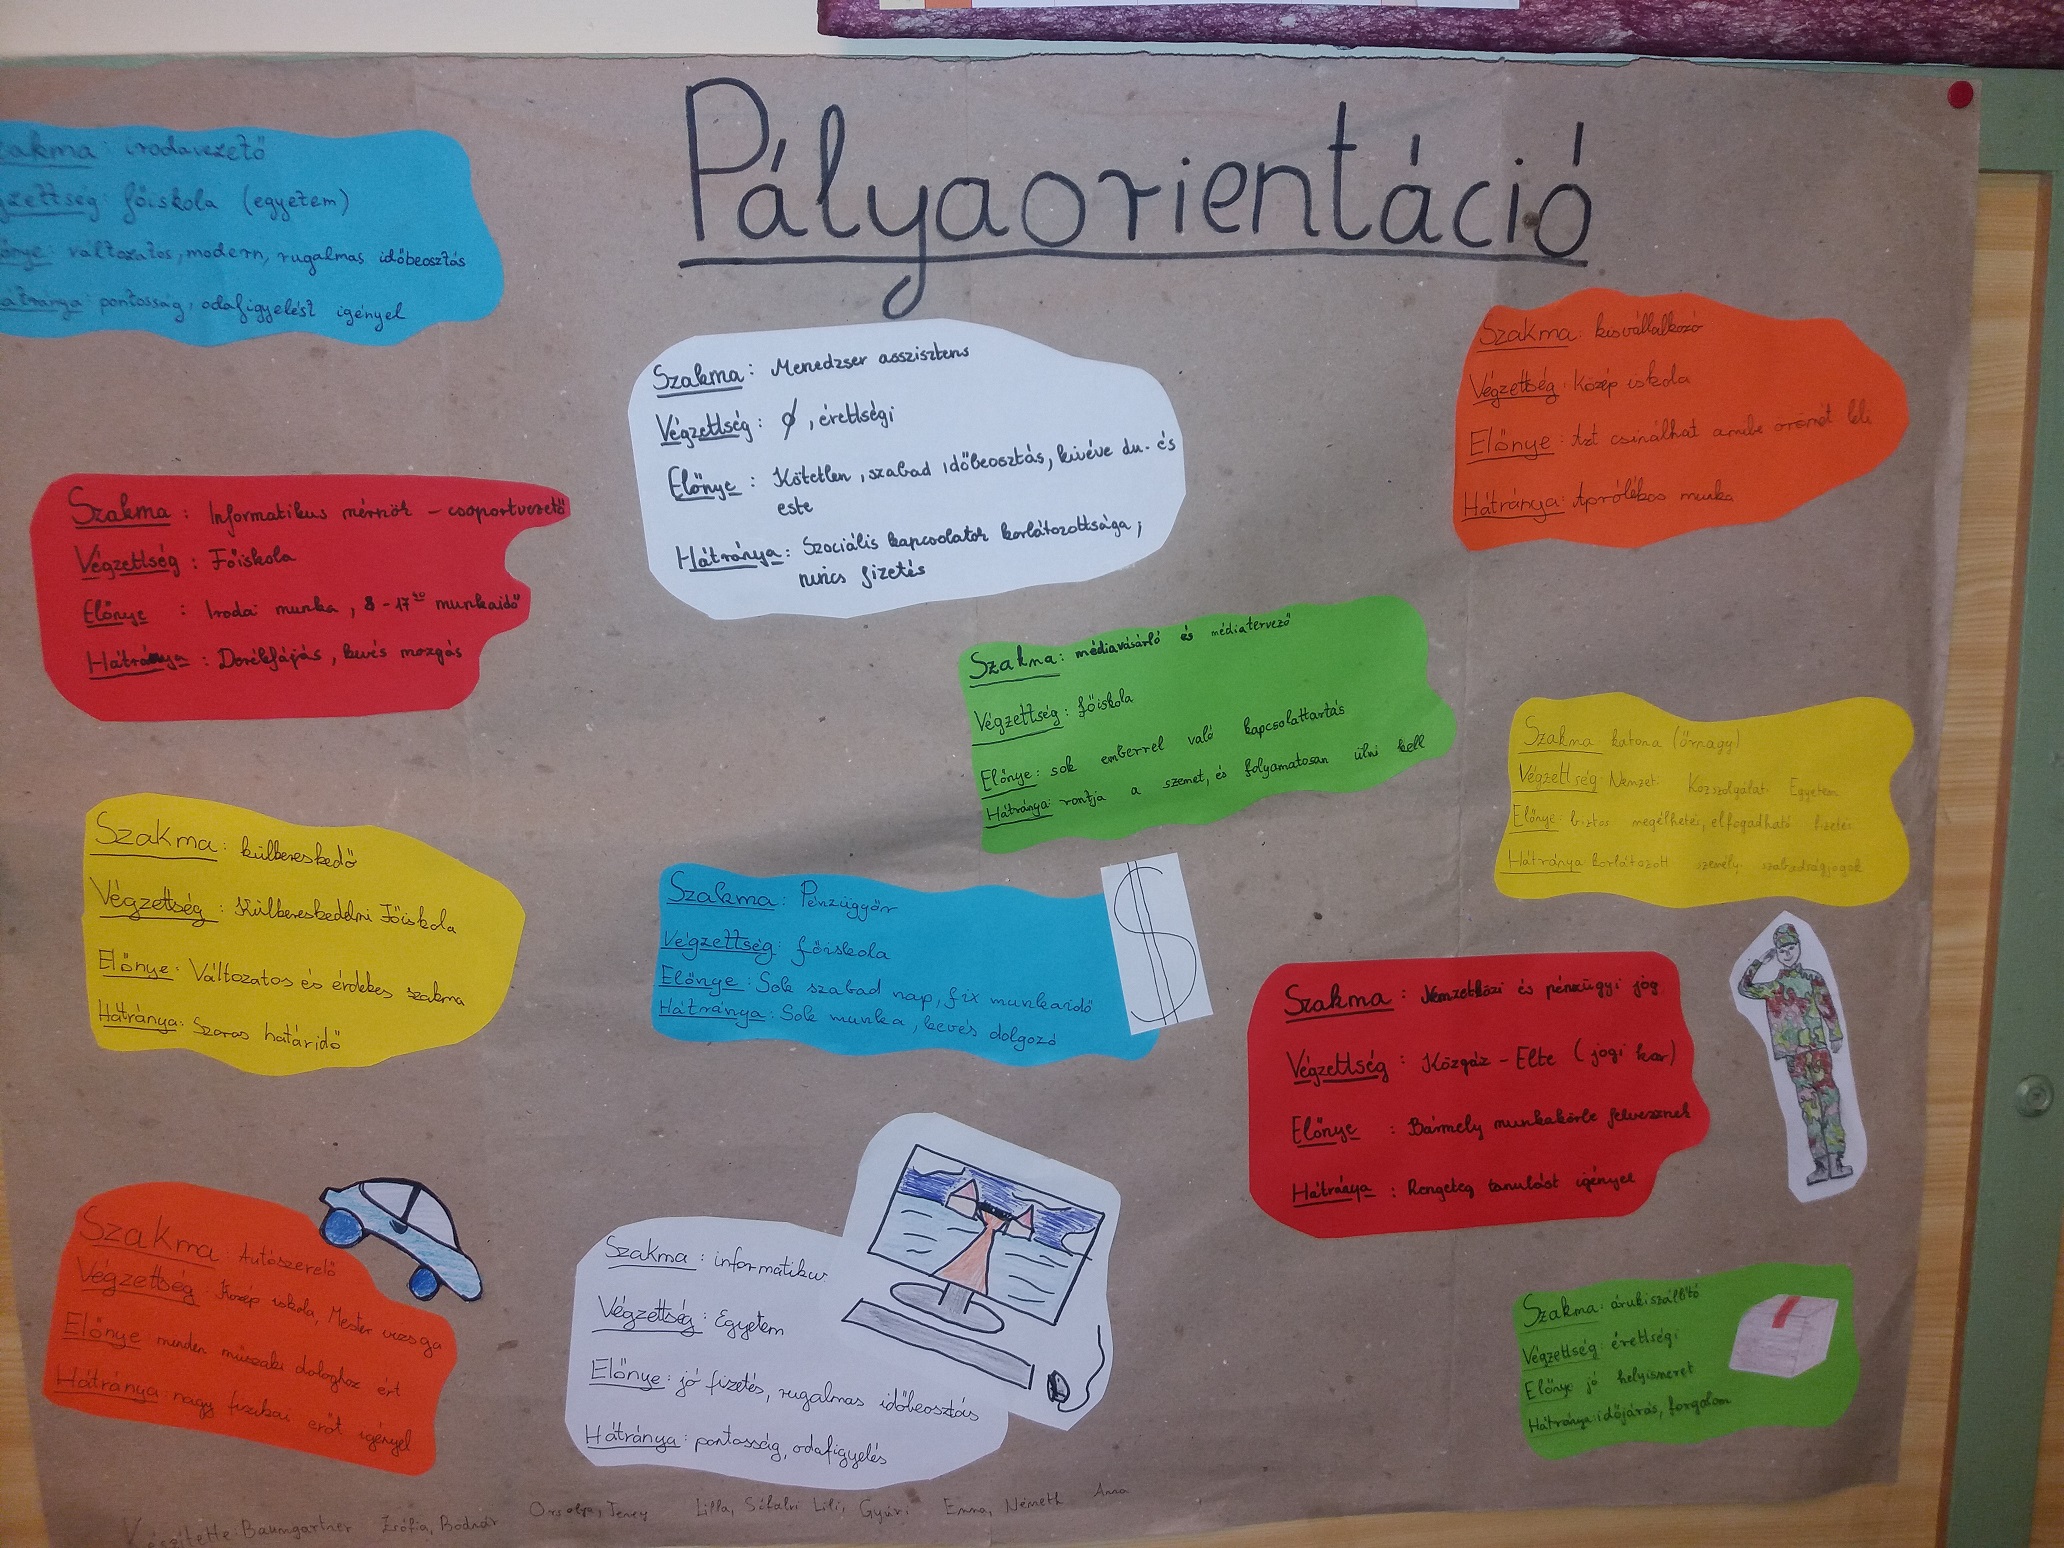 Pályaorientáció
akma: irodavezető
gzettség: főiskola (egyetem)
őnye: változatos, modern, rugalmas időbeosztás
átránya: pontosság, odafigyelést igényel
Szakma: Menedzser asszisztens
Végzettség: ∅, érettségi
Előnye: Kötetlen, szabad időbeosztás, kivéve du. és
este
Hátránya: Szociális kapcsolatok korlátozottsága,
nincs fizetés
Szakma: kisvállalkozó
Végzettség: Közép iskola
Előnye: Azt csinálhat amibe örömét leli
Hátránya: Aprólékos munka
Szakma: Informatikus mérnök - csoportvezető
Végzettség: Főiskola
Előnye: Iroda munka, 8-17 munkaidő
Hátránya: Derékfájás, kevés mozgás
Szakma: médiavásárló és médiatervező
Végzettség: főiskola
Előnye: sok emberrel való kapcsolattartás
Hátránya: rontja a szemet, és folyamatosan ülni kell
Szakma katona (őrnagy)
Végzettség: Nemzet Közszolgálat Egyetem
Előnye: biztos megélhetés, elfogadható fizetés
Hátránya korlátozott személyi szabadságjogok
Szakma: külkereskedő
Végzettség: Külkereskedelmi Főiskola
Előnye: Változatos és érdekes szakma
Hátránya: Szoros határidő
Szakma: Pénzügyőr
Végzettség: főiskola
Előnye: Sok szabad nap, fix munkaidő
Hátránya: Sok munka, kevés dolgozó
$
Szakma: Nemzetközi és pénzügyi jog
Végzettség: Közgáz - Elte (jogi kar)
Előnye: Bármely munkakörbe felvesznek
Hátránya: Rengeteg tanulást igényel
Szakma: Autószerelő
Végzettség: Közép iskola, Mester vizsga
Előnye minden műszaki dologhoz ért
Hátránya: nagy fizikai erőt igényel
Szakma: informatikus
Végzettség: Egyetem
Előnye: jó fizetés, rugalmas időbeosztás
Hátránya: pontosság, odafigyelés
Szakma: árukiszállító
Végzettség: érettségi
Előnye jó helyismeret
Hátránya: időjárás, forgalom
Készítette: Baumgartner Zsófia, Bódnár Orsolya, Jeney Lilla, Lili, Gyüri Emma, Németh Anna